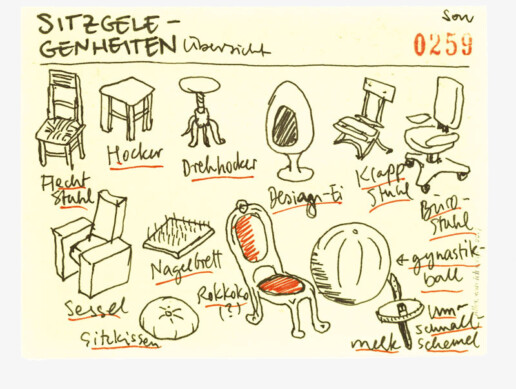 SITZGELE-
GENHEITEN Übersicht
Son
0259
Flecht
Stuhl
Hocker
Drehhocker
Design-Ei
Klapp
Stuhl
Büro-
Stuhl
Sessel
Nagelbrett
Sitzkissen
Rokkoko
(?)
← gynastik-
ball
melk
um-
schnall-
schemel